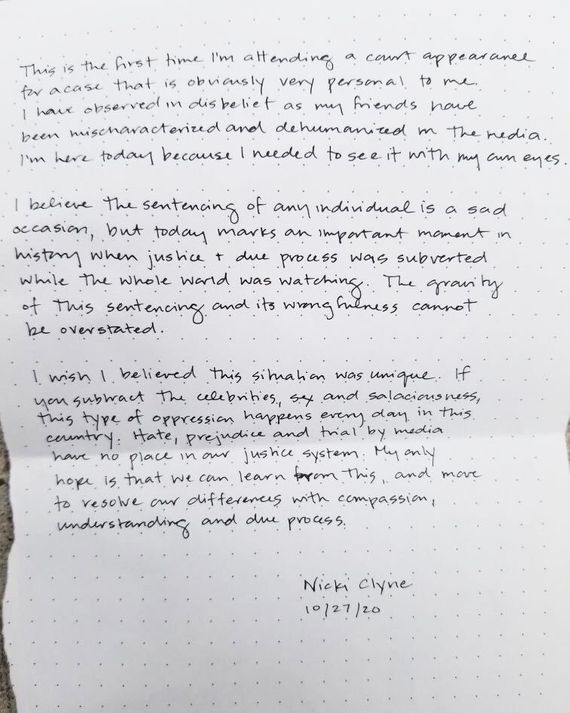 This is the first time I'm attending a court appearance
for a case that is obviously very personal to me.
I have observed in disbelief as my friends have
been mischaracterized and dehumanized in the media.
I'm here today because I needed to see it with my own eyes.
I believe the sentencing of any individual is a sad
occasion, but today marks an important moment in
history when justice + due process was subverted
while the whole world was watching. The gravity
of this sentencing and its wrongfulness cannot
be overstated.
I wish I believed this situation was unique. If
you subtract the celebrities, sex and salaciousness,
this type of oppression happens every day in this
country. Hate, prejudice and trial by media
have no place in our justice system. My only
hope is that we can learn from this, and move
to resolve our differences with compassion,
understanding and due process.
Nicki Clyne
10/27/20